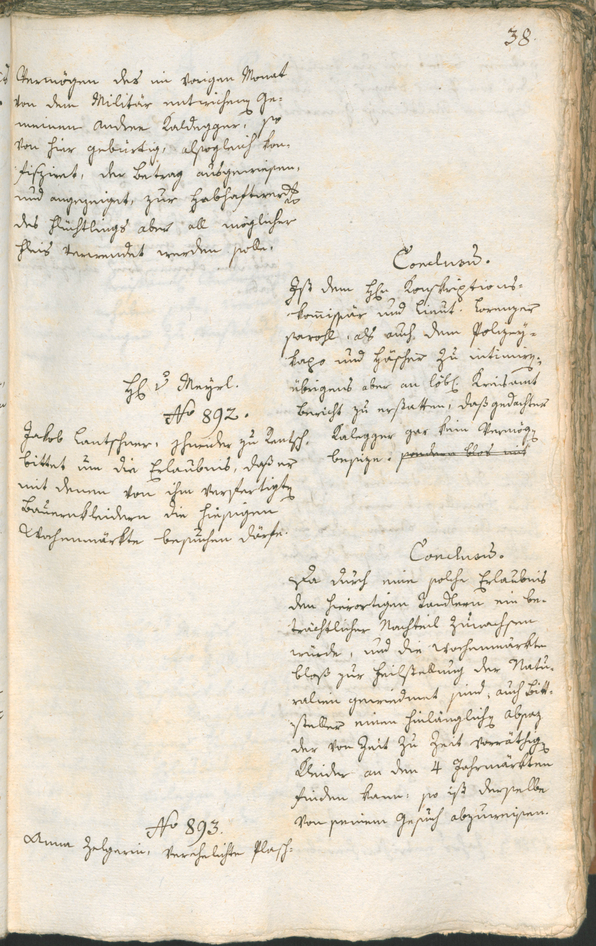 38.
Vermögen des im vorigen Monat
von dem Militär entwichenen Ge-
meinen Andree Kaldegger, so
von hier gebürtig, alsogleich kon-
fisziret, der Betrag ausgewiesen,
und angezeiget, zur Habhaftwerdg
des Flüchtlings aber all möglicher
Fleis verwendet werden solle.
Conclusu.
Ist dem H Konskriptions-
kommissär und Lieut. Lorenzer
sowohl, als auch dem Polizey-
kapo und Häscher zu intimirn,
übrigens aber an löbl Kreisamt
Bericht zu erstatten, daß gedachter
Kalegger gar kein Vermögn
besize. sondern blos mit
H v Meyrl.
No 892.
Jakob Lantschner, Schneider zu
bittet um die Erlaubnis, daß er
mit denen von ihm verfertigtn
Bauernkleidern die hiesigen
Wochenmärkte besuchen därfe.
Conclusu.
Da durch eine solche Erlaubnis
den hierortigen Tandlern ein be-
trächtlicher Nachteil zuwachsen
würde, und die Wochenmärkte
bloß zur Feilstellung der Natu-
ralien gewidmet sind, auch Bitt-
steller einen hinlänglichn Absaz
der von Zeit zu Zeit vorräthign
Kleider an den 4 Jahrmärkten
finden kann; so ist derselbe
von seinem Gesuch abzuweisen.
No 893.
Anna Zelgerin, verehelichte Plasch-